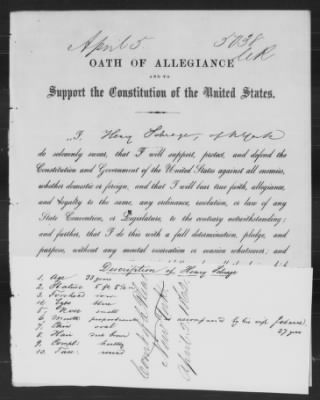 April 5
5038
OATH OF ALLEGIANCE
AND TO
Support the Constitution of the United States.
I, Henry of N York
do solemnly swear, that I will support, protect, and defend the
Constitution and Government of the United States against all enemies,
whether domestic or foreign, and that I will bear true faith, allegiance,
and loyalty to the same, any ordinance, resolution, or law of any
State Convention, or Legislature, to the contrary notwithstanding;
and further, that I do this with a full determination, pledge, and
purpose, without any mental reservation or evasion whatsoever; and
Description of Henry
1. Age 33 years
2. Stature 5 ft
3. Forehead
4. Eyes blue
5. Nose small
6. Mouth accompanied by his wife
7. Chin oval 27 years
8. Hair
9. Compl: healthy
10. Face: round
April